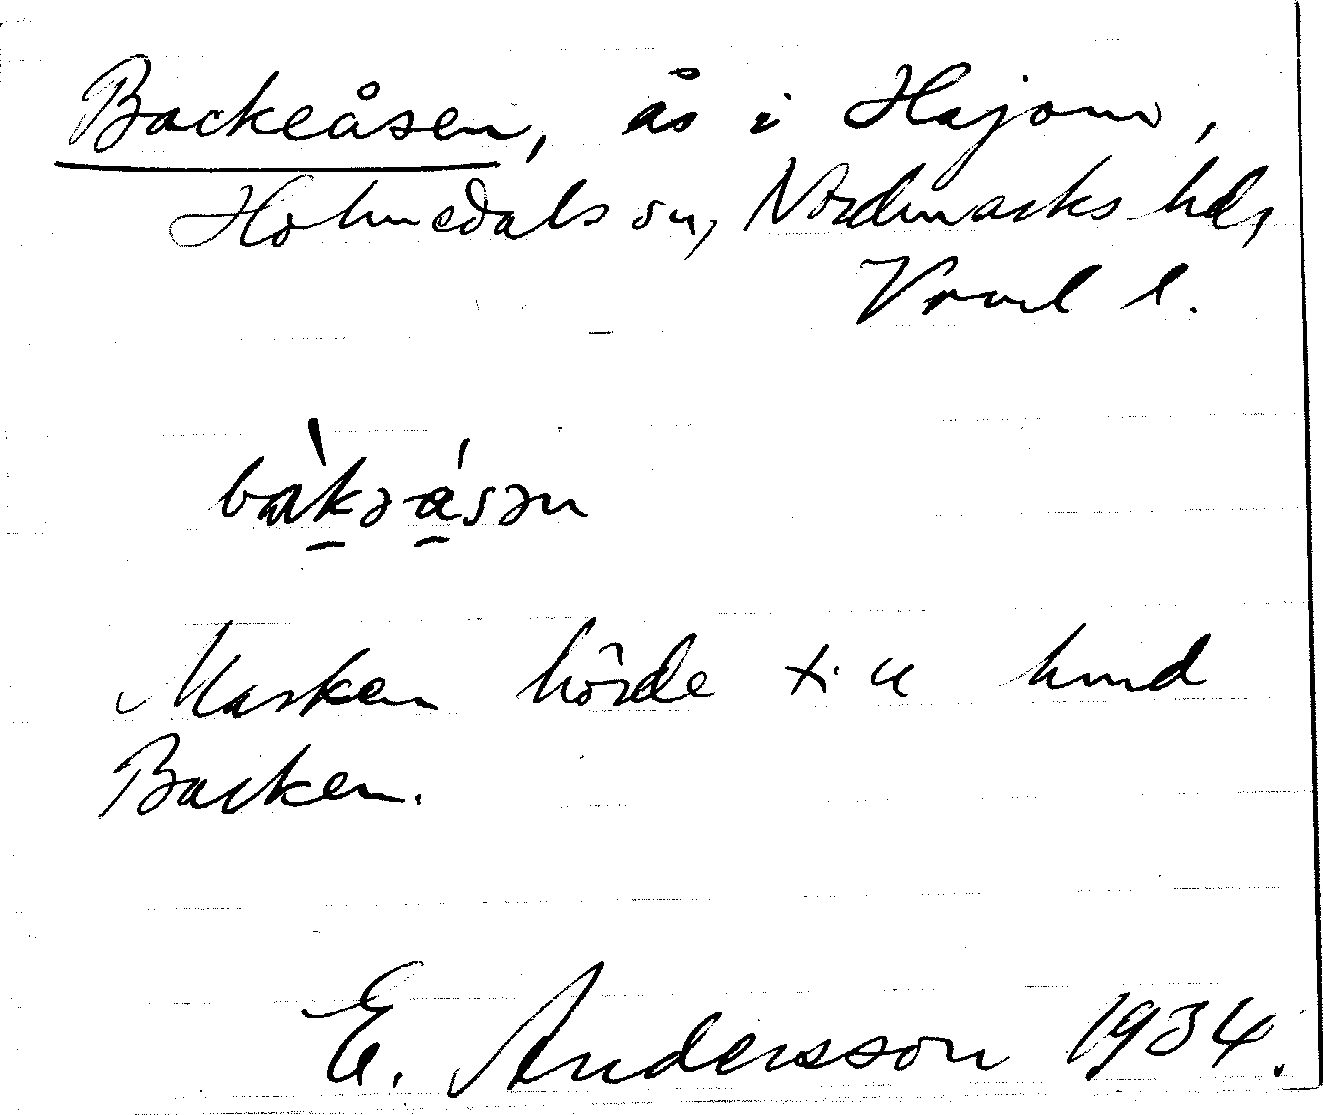 Backeåsen, ås i Hajom,
Holmedals sn, Nordmarks hd,
Vrml l.
bàkəåsən
Marken hörde till hmd
Backen.
E. Andersson 1934.